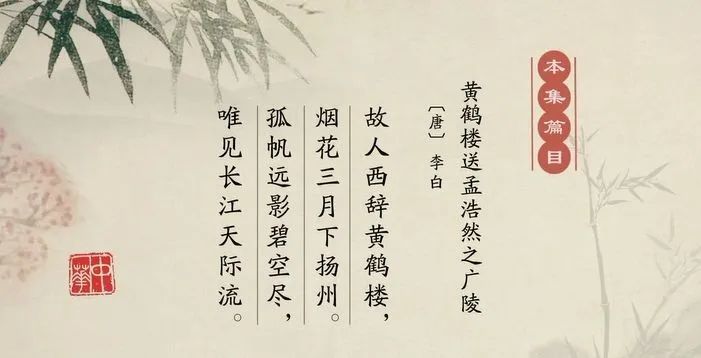 本集篇目
黄鹤楼送孟浩然之广陵
〔唐〕 李白
故人西辞黄鹤楼，
烟花三月下扬州。
孤帆远影碧空尽，
唯见长江天际流。
中华